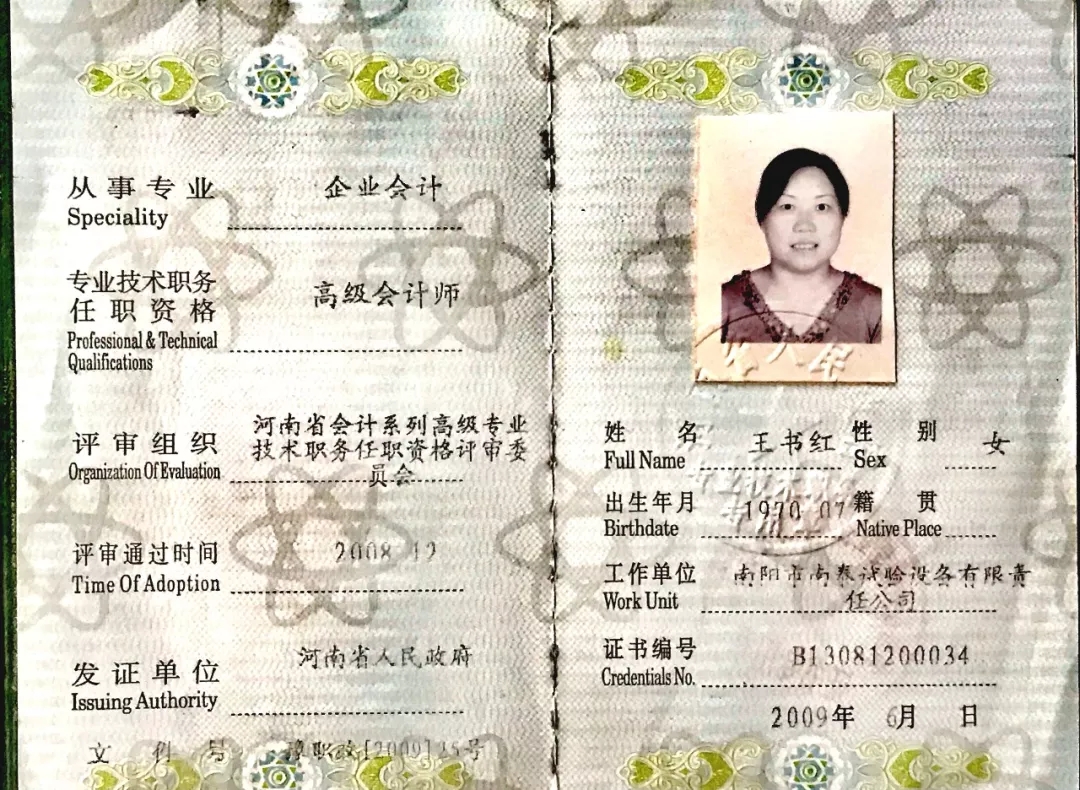 从事专业 企业会计
Speciality
专业技术职务
任职资格 高级会计师
Professional & Technical
Qualifications
评审组织 河南省会计系列高级专业
技术职务任职资格评审委
员会
Organization Of Evaluation
评审通过时间 2008 12
Time Of Adoption
发证单位 河南省人民政府
Issuing Authority
文件号 豫职改[2009]35号
姓名 王书红 性别 女
Full Name Sex
出生年月 1970 07 籍贯
Birthdate Native Place
工作单位 南阳市南泰试验设备有限责
任公司
Work Unit
证书编号 B13081200034
Credentials No.
2009年 6月 日